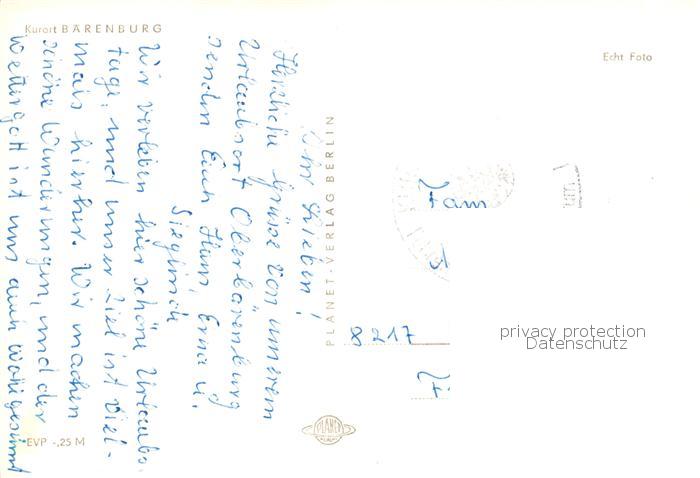 Kurort BÄRENBURG
Echt Foto
Ihr Lieben!
Herzliche Grüße von unserem
Urlaubsort Oberbärenburg
senden Euch Hans, Erna u.
Sieglinde
Wir verleben hier schöne Urlaubs-
tage, und unser Ziel ist viel-
mals hierher. Wir machen
schöne Wanderungen, und der
Wettergott ist uns auch wohlgesinnt
PLANET-VERLAG BERLIN
Fam
8217
EVP -,25 M
PLANET
privacy protection
Datenschutz